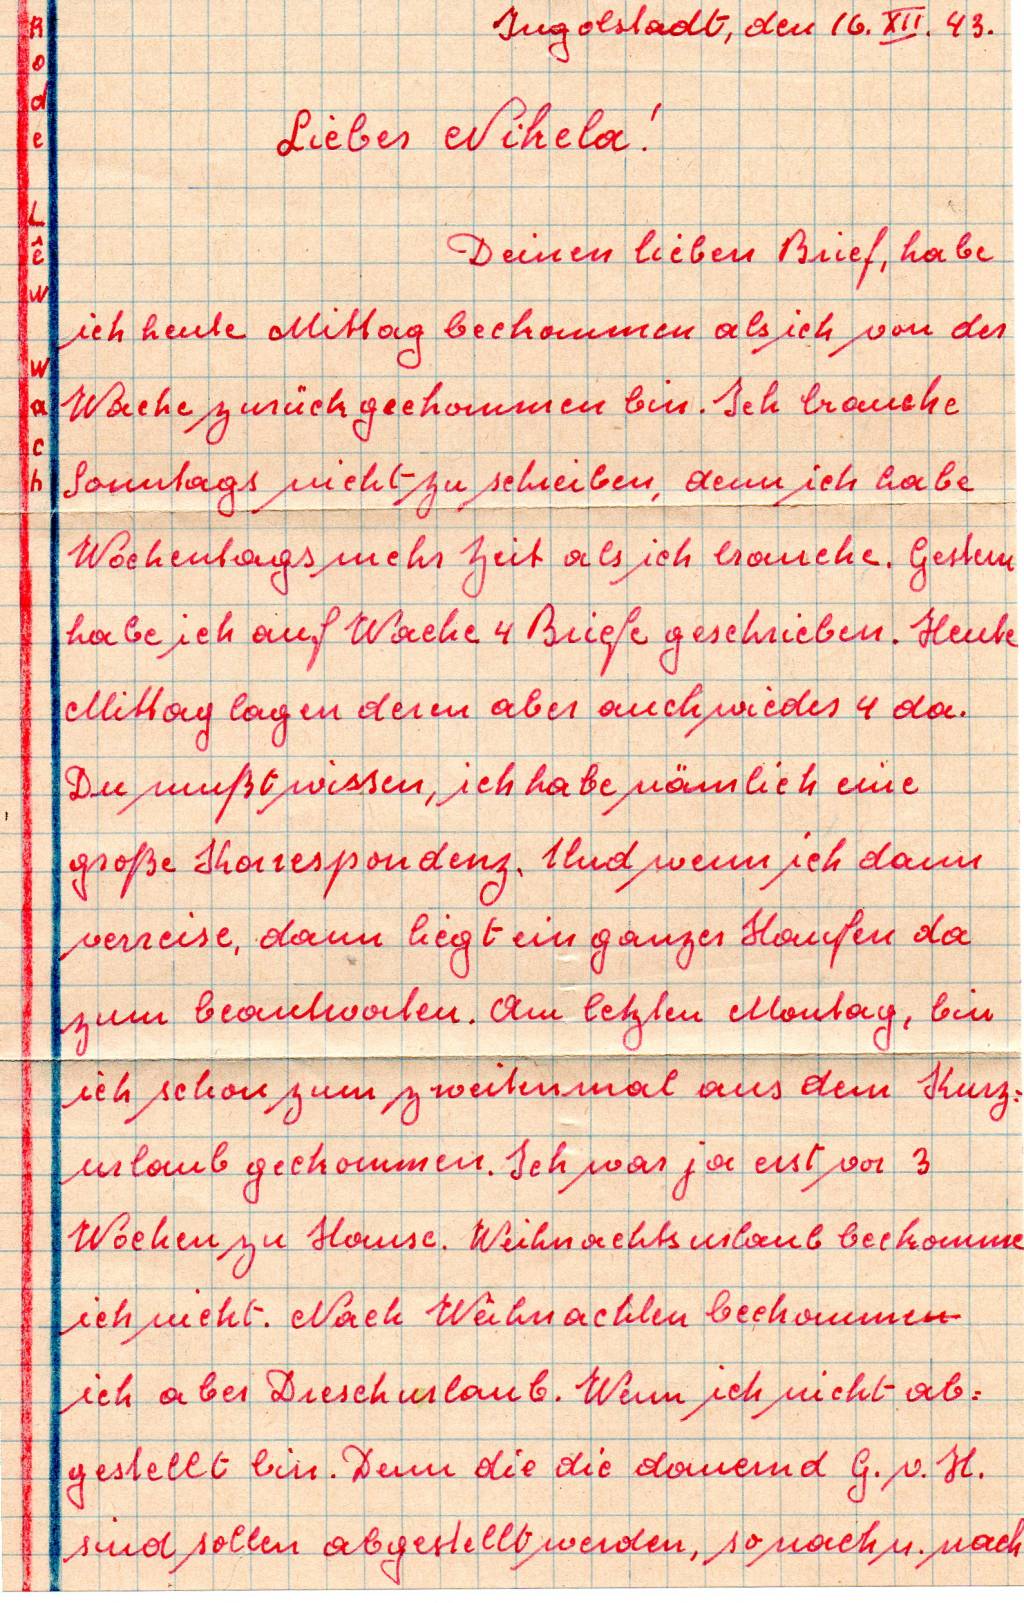 Ingolstadt, den 16. XII. 43.
Liebes Nikela!
Deinen lieben Brief, habe
ich heute Mittag beckommen als ich von der
Wache zurückgekommen bin. Ich brauche
Sonntags nicht zu schreiben, denn ich habe
Wochentags mehr Zeit als ich brauche. Gestern
habe ich auf Wache 4 Briefe geschrieben. Heute
Mittag lagen deren aber auch wieder 4 da.
Du mußt wissen, ich habe nämlich eine
große Korrespondenz. Und wenn ich dann
verreise, dann liegt ein ganzer Haufen da
zum beantworten. Am letzten Montag, bin
ich schon zum zweitenmal aus dem Kurz=
urlaub gekommen. Ich war ja erst vor 3
Wochen zu Hause. Weihnachtsurlaub beckomme
ich nicht. Nach Weihnachten beckommen
ich aber Dreschurlaub. Wenn ich nicht ab=
gestellt bin. Denn die die dauernd G. v. H.
sind sollen abgestellt werden, so nach u. nach
Rode Lêw wach